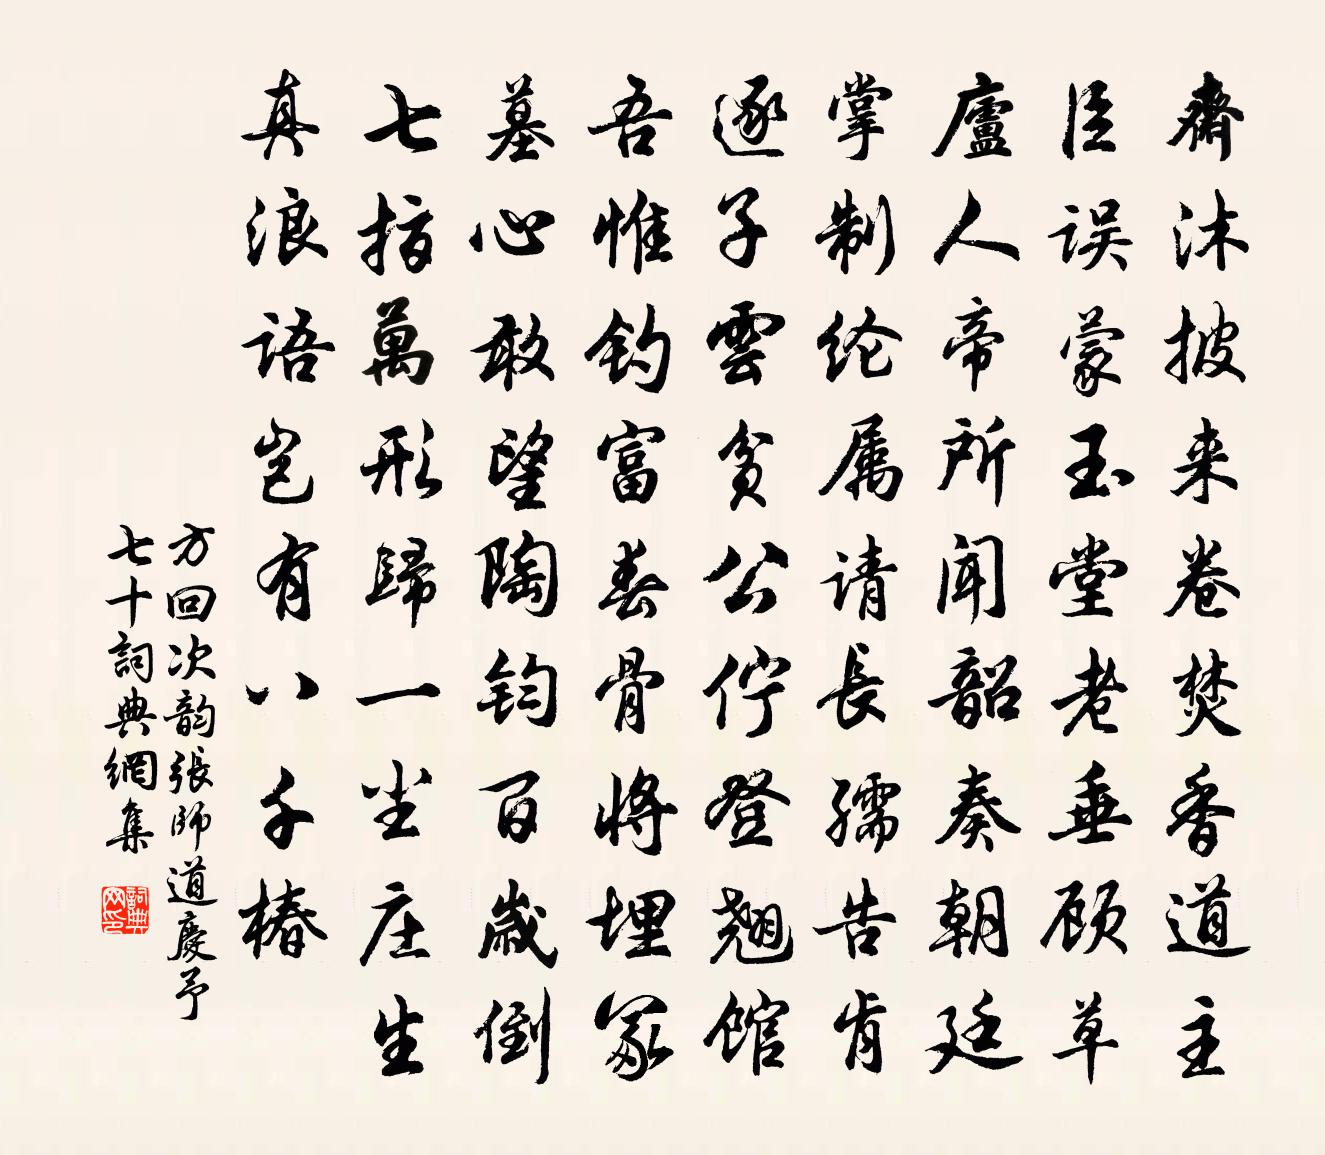 齋沐披来卷焚香道主
臣误蒙玉堂老垂顾草
廬人帝所闻韶奏朝廷
掌制纶属请長孺告肯
逐子雲贫公佇登翘馆
吾惟钓富春骨将埋冢
墓心敢望陶钧百歲倒
七指萬形歸一坐庄生
真浪语岂有八千椿
方回次韵張师道慶予
七十詞典網集
詞典网印